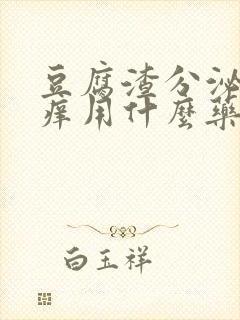 豆腐渣分泌
痒用什麼藥
白玉祥